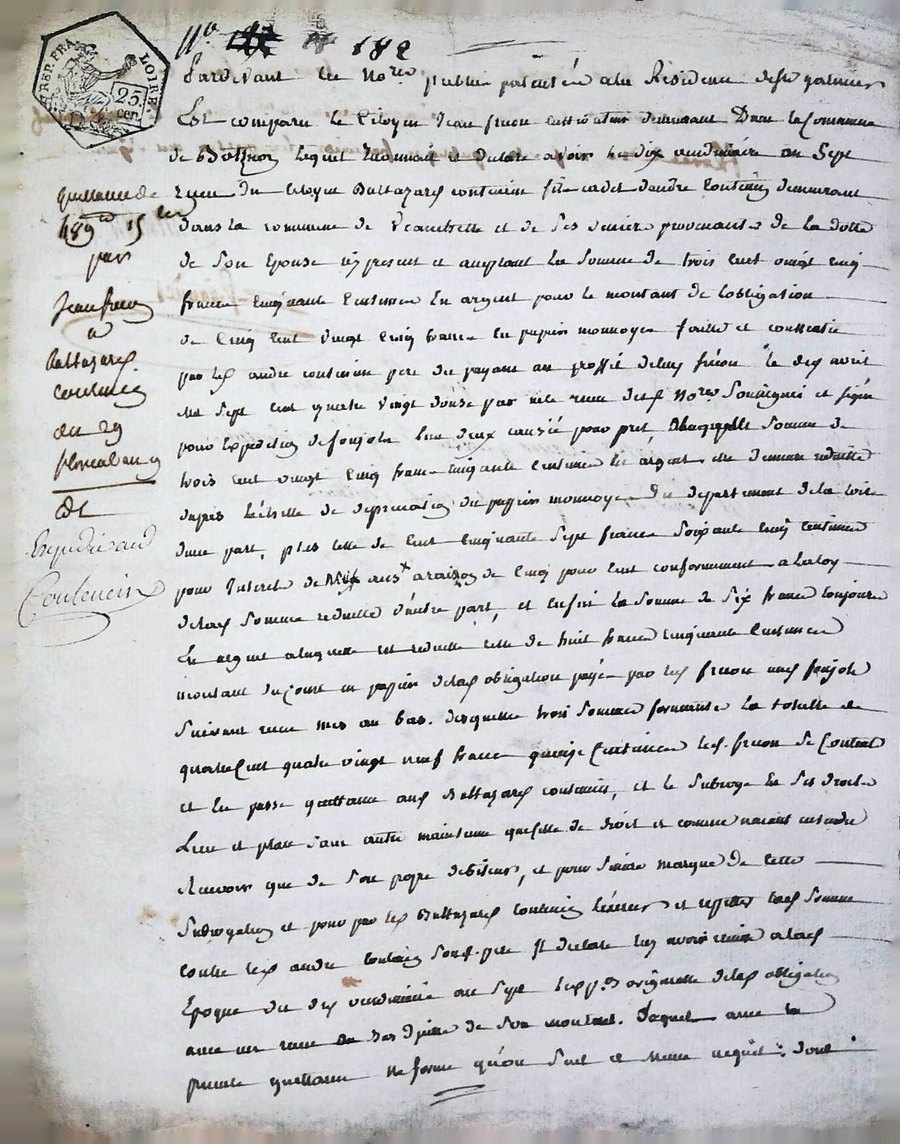 N° 182
REP. FRA.
LOIRE.
25
cen.
Pardevant le No.re public patenté a la Résidence de St galmier
Est comparu le Citoyen Jean frecon cultivateur demeurant Dans la Commune
de lequel reconnait et declare avoir le dix vendemiaire an Sept
reçu du Citoyen Baltazard coulencin fils cadet dandre Coulencin demeurant
dans la commune de et de Ses deniers provenants de la dotte
de Son Epouse icy present et acceptant la Somme de trois cent vingt cinq
francs cinquante Centimes En argent pour le montant de lobligation
de Cinq Cent Vingt Cinq francs En papier monnoye faitte et consentie
par led. andre coulencin pere du payant au proffit dudit frécon le dix avril
Mil Sept Cent quatre Vingt douze par acte recu dud. No.re Soussigné et signé
pour Expedition de foujols causée pour pret, Somme de
trois cent vingt Cinq francs Cinquante Centimes En argent, elle demeure reduitte
dapres Léchelle de depreciation du papier monnoye du departement de la Loire
dune part, plus celle de Cent Cinquante Sept francs Soixante Cinq Centimes
pour Interet de ans a raison de Cinq pour Cent conformement a la loy
de lad. Somme reduitte d'autre part, et Enfin la Somme de Six francs toujours
En argent a laquelle est reduitte celle de huit francs Cinquante Centimes
montant du Cout en papier de lad. obligation payée par led. frecon aud. foujols
Suivant recu mis au bas. desquelles trois Sommes formants la totalle de
quatre Cent quatre Vingt neuf francs quinze Centimes led. frecon Se Contente
et En passe quittance aud. Baltazard coulencin, et le Subroge En Ses droits
Lieu et place Sans autre maintenue que celle de droit et comme nayant entendu
recevoir que de Son propre debiteur, et pour Sincere marque de cette
Subrogation et pour par led. Baltazard Coulencin et lad. Somme
contre led. andre Coulencin Sond. pere Il declare luy avoir remis a lad.
Epoque du dix vendemiaire an Sept originelle de lad. obligation
avec un recu au bas d'icelle de Son montant. Laquel avec la
presente quittance ne forme qu'un Seul et Meme acquit: dont
quittance de
489 15
par
Jean frecon
a
Baltazard
Coulencin
du 29
floreal an 9
Coulencin